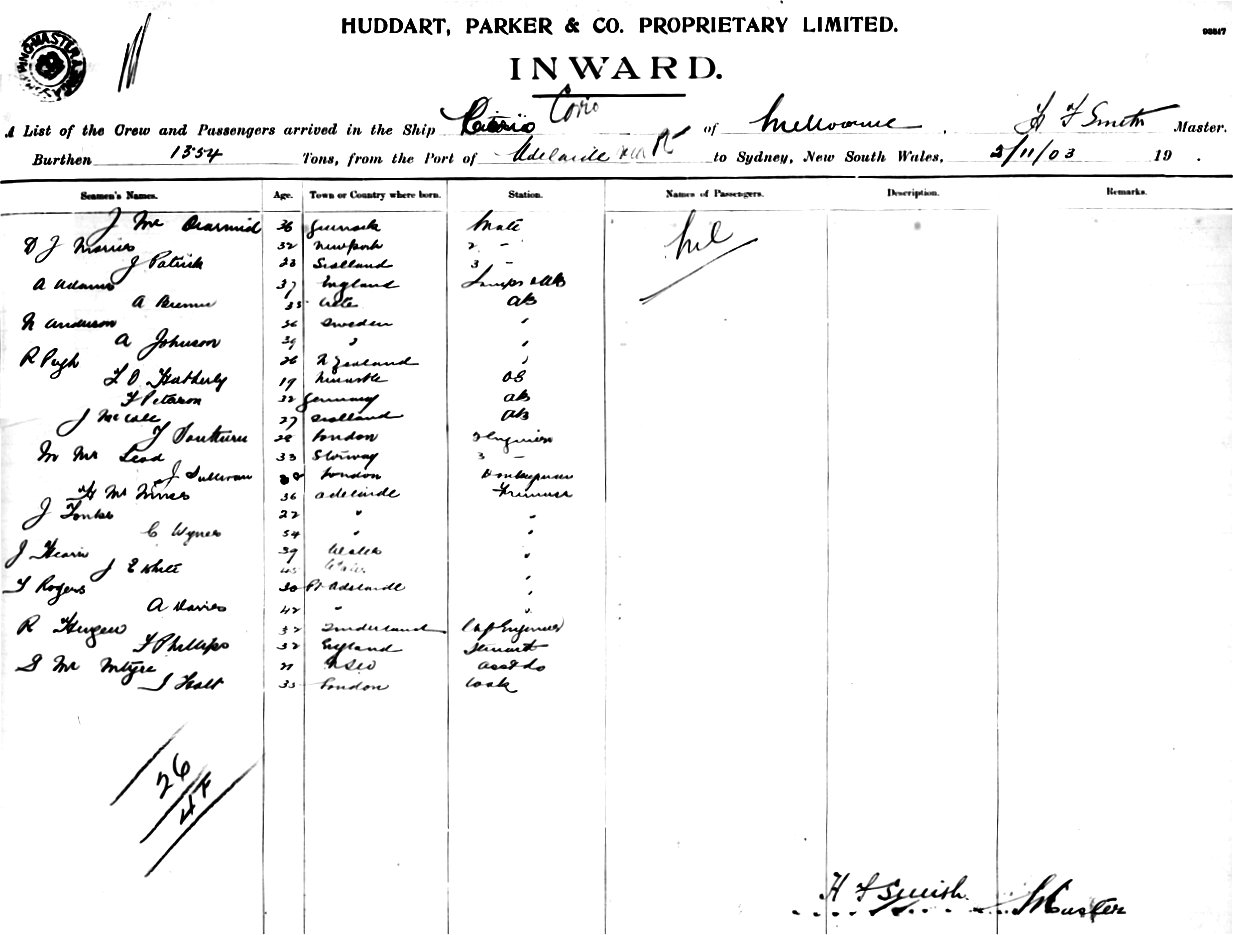 HUDDART, PARKER & CO. PROPRIETARY LIMITED.
INWARD.
A List of the Crew and Passengers arrived in the Ship Corio of Melbourne. H F Smith Master.
Burthen 1354 Tons, from the Port of Adelaide to Sydney, New South Wales, 2/11/03 19 .
Seamen's Names. Age. Town or Country where born. Station. Names of Passengers. Description. Remarks.
J Mc Diarmid 36 Mate Nil
D J 32 Newport 2 -
J Patrick 23 Scotland 3 -
A Adams 37 England Lamps & AB
A AB
N Anderson 36 Sweden "
A Johnson 39 " "
R Pugh 26 N Zealand "
19 Newcastle OS
F Peterson 32 Germany AB
J McCall 27 Scotland AB
28 London 2 Engineer
33 3 -
J Sullivan London Donkeyman
H Mc 36 Adelaide Fireman
J Tonks 22 " "
C Wynes 54 " "
J 39 "
J E White 45
T Rogers 30 Pt Adelaide "
A Davies 42 " "
R 32 Sunderland Engineer
F Phillips 32 England Stewart
S Mc Intyre 21 NSW Asst do
J Holt 35 London Cook
26
H F Smith Master